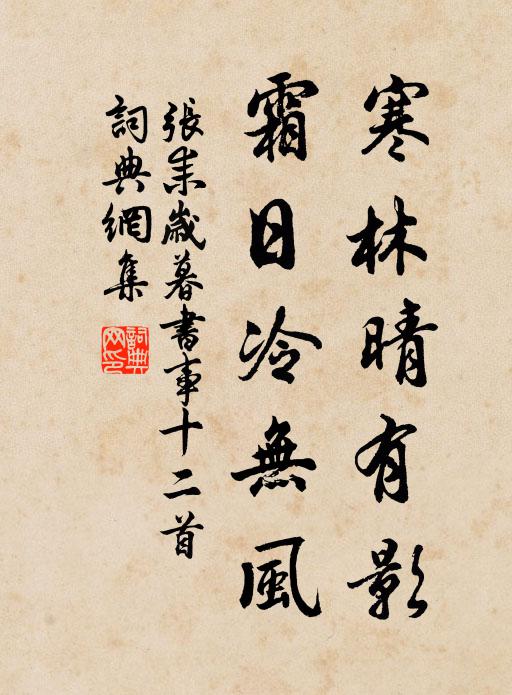 寒林晴有影
霜日冷無風
張耒歲暮書事十二首
詞典網集
詞典網印